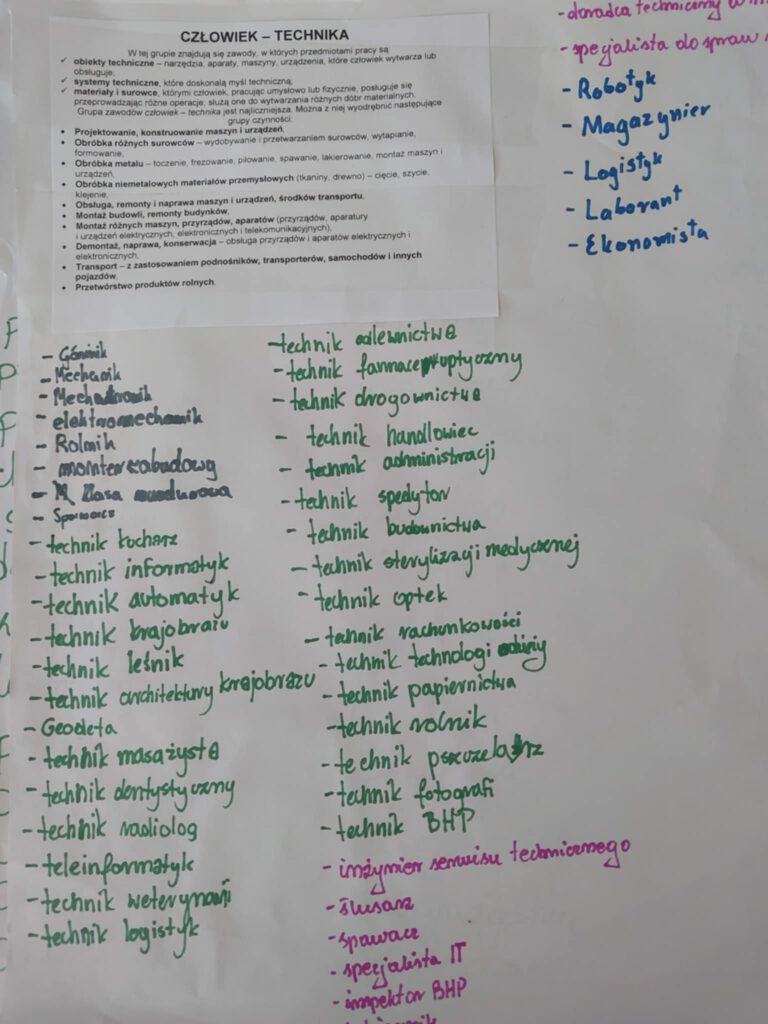 CZŁOWIEK – TECHNIKA
W tej grupie znajdują się zawody, w których przedmiotami pracy są:
✓ obiekty techniczne – narzędzia, aparaty, maszyny, urządzenia, które człowiek wytwarza lub
obsługuje;
✓ systemy techniczne, które doskonalą myśl techniczną;
✓ materiały i surowce, którymi człowiek, pracując umysłowo lub fizycznie, posługuje się
przeprowadzając różne operacje; służą one do wytwarzania różnych dóbr materialnych.
Grupa zawodów człowiek – technika jest najliczniejsza. Można z niej wyodrębnić następujące
grupy czynności:
• Projektowanie, konstruowanie maszyn i urządzeń,
• Obróbka różnych surowców – wydobywanie i przetwarzaniem surowców, wytapianie,
formowanie,
• Obróbka metalu – toczenie, frezowanie, piłowanie, spawanie, lakierowanie, montaż maszyn i
urządzeń,
• Obróbka niemetalowych materiałów przemysłowych (tkaniny, drewno) – cięcie, szycie,
klejenie,
• Obsługa, remonty i naprawa maszyn i urządzeń, środków transportu,
• Montaż budowli, remonty budynków,
• Montaż różnych maszyn, przyrządów, aparatów (przyrządów, aparatury
i urządzeń elektrycznych, elektronicznych i telekomunikacyjnych),
• Demontaż, naprawa, konserwacja – obsługa przyrządów i aparatów elektrycznych i
elektronicznych,
• Transport – z zastosowaniem podnośników, transporterów, samochodów i innych
pojazdów,
• Przetwórstwo produktów rolnych.
- Górnik
- Mechanik
- Mechatronik
- elektromechanik
- Rolnik
- monter zabudowy
- klasa mundurowa
- Spawacz
- technik kucharz
- technik informatyk
- technik automatyk
- technik krajobrazu
- technik leśnik
- technik architektury krajobrazu
- Geodeta
- technik masażysta
- technik dentystyczny
- technik radiolog
- teleinformatyk
- technik weterynarii
- technik logistyk
- technik odlewnictwa
- technik farmaceuptyczny
- technik drogownictwa
- technik handlowiec
- technik administracji
- technik spedytor
- technik budownictwa
- technik sterylizacji medycznej
- technik optek
- technik rachunkowości
- technik technologi odzieży
- technik papiernictwa
- technik rolnik
- technik pszczelarz
- technik fotografi
- technik BHP
- inżynier serwisu technicznego
- ślusarz
- spawacz
- specjalista IT
- inspektor BHP
- doradca techniczny w
- specjalista do spraw
- Robotyk
- Magazynier
- Logistyk
- Laborant
- Ekonomista